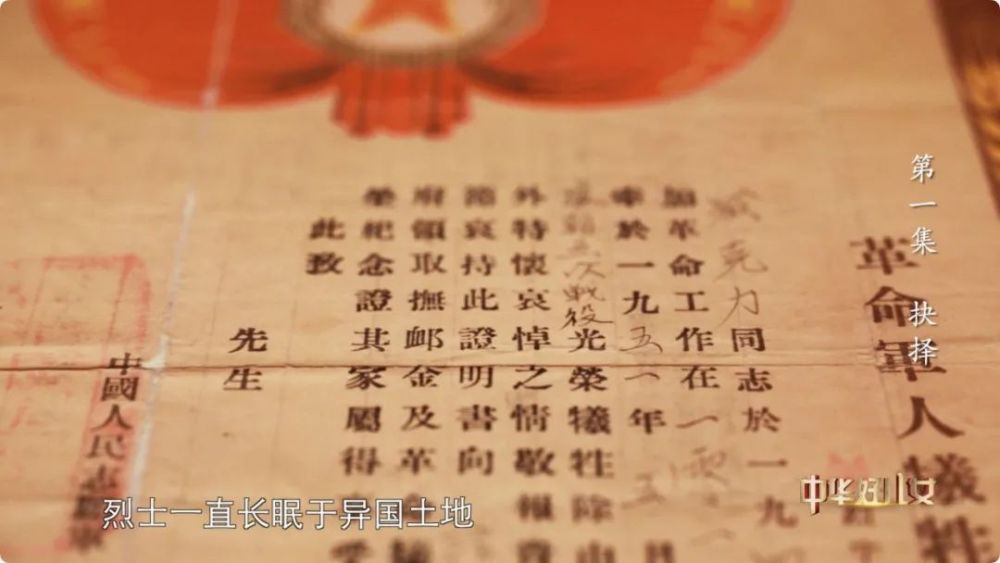 第一集 抉择
革命軍人犧牲
克力同志於一九
加革命工作在一
幸於一九五一年五月
五次戰役光榮犧牲除由
外特懷哀悼之情敬報貴
節哀持此證明書向
府領取撫卹金及革
榮紀念證其家屬得
此致
先生
中國人民志願軍
中华好儿女
烈士一直长眠于异国土地